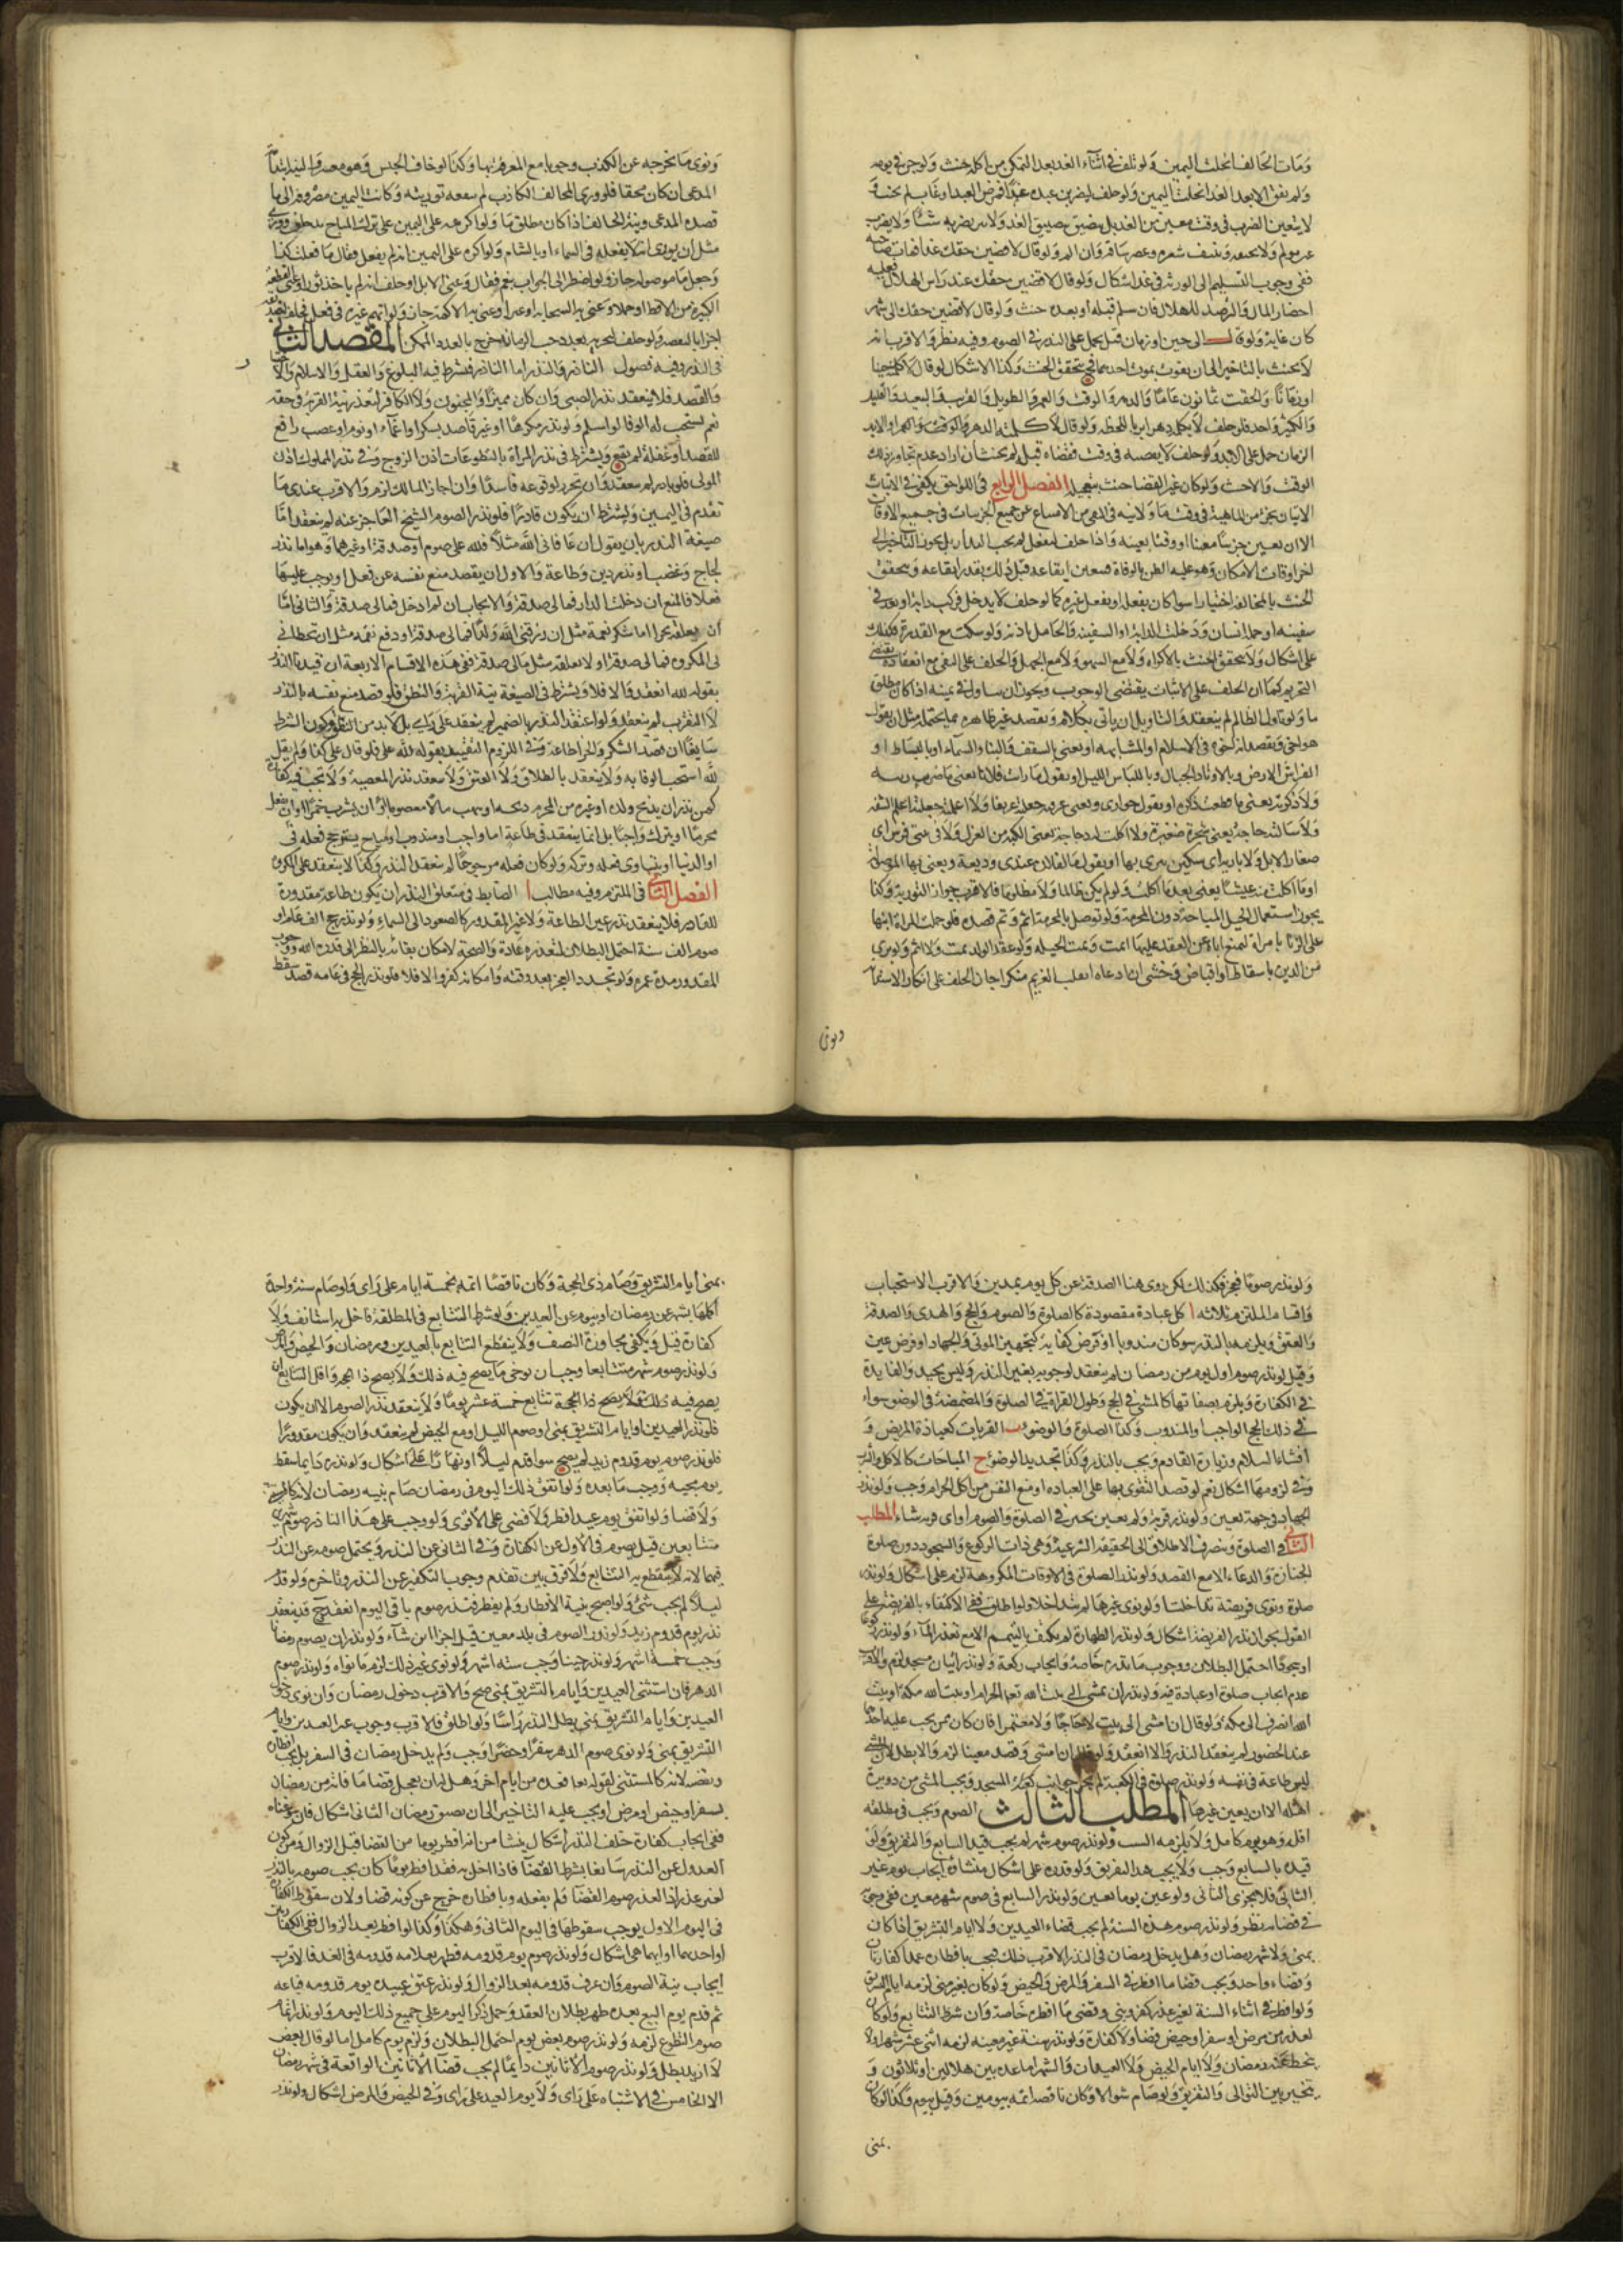 ومات الحالف انحلت اليمين ولو تلف في اثناء الغد بعد التمكن من اكله حنث ولو جن في يومه
ولم يفق الا بعد الغد انحلت اليمين ولو حلف ليضربن عبده غدا فمرض العبد او غاب لم يحنث و
لا يتعين الضرب في وقت معين من الغد بل يتضيق بتضيق الغد ولا يبر بضربه ميتا ولا بضرب
غير مولم ولا بخنقه ونتف شعره وعصر ساقه وان الم ولو قال لاقضين حقك غدا فمات صاحبه
ففي وجوب التسليم الى الورثة في غد اشكال ولو قال لاقضين حقك عند راس الهلال فعليه
احضار المال والترصد للهلال فان سلم قبله او بعده حنث ولو قال لاقضين حقك الى شهر
كان غاية ولو قال الى حين او زمان قيل يحمل على النذر في الصوم وفيه نظر والاقرب انه
لا يحنث بالتاخير الى ان يفوت بموت احدهما فيتحقق الحنث وكذا الاشكال لو قال لا كلمته حينا
او زمانا والحقب ثمانون عاما والدهر والوقت والعمر والطويل والقريب والبعيد والقليل
والكثير واحد فلو حلف لا يكلمه دهرا بر باللحظة ولو قال لا كلمته الدهر والوقت والعمر او الابد
الزمان حمل على الابد ولو حلف لا يقضيه في وقت فقضاه قبله لم يحنث ان اراد عدم تجاوز ذلك
الوقت والا حنث ولو كان غير القضا حنث بتعجيله الفصل الرابع في اللواحق يكفي في الاثبات
الاتيان بجزء من الماهية في وقت ما ولا بد في النفي من الامتناع عن جميع الجزئيات في جميع الاوقات
الا ان يعين جزئيا معينا او وقتا بعينه واذا حلف ليفعل لم يجب البدار بل يجوز التاخير الى
اخر اوقات الامكان وهو غلبة الظن بالوفاة فيتعين ايقاعه قبل ذلك بقدر ايقاعه ويتحقق
الحنث بالمخالفة اختيارا سوا كان بفعله او بفعل غيره كما لو حلف لا يدخل فركب دابة او قعد في
سفينة او حمله انسان ودخلت الدابة او السفينة والحامل باذنه ولو سكت مع القدرة فكذلك
على اشكال ولا يتحقق الحنث بالاكراه ولا مع السهو ولا مع الجهل والحلف على النفي مع انعقاده يقتضي
التحريم كما ان الحلف على الاثبات يقتضي الوجوب ويجوز ان يتاول في يمينه اذا كان مظلوما
ولو تاول الظالم لم ينعقد والتاويل ان ياتي بكلام ويقصد غير ظاهره مما يحتمله مثل ان يقول
هو اخي ويقصد انه اخي في الاسلام او المشابهة او يعني بالسقف والبناء السماء او بالبساط او
الفراش الارض وبالاوتاد الجبال وباللباس الليل او يقول ما رايت فلانا يعني ما ضربت ريته
ولا ذكرته يعني ما قطعت ذكره او يقول جواري
ولا سالته حاجة يعني شجرة صغيرة ولا اكلت له دجاجة يعني الكبة من الغزل ولا في بيتي فرش اي
صغار الابل ولا باريه اي سكين يبري بها او يقول ما لفلان عندي وديعة ويعني بها الموصولة
او ما اكلت منه شيئا يعني بعد ما اكلت ولو لم يكن ظالما ولا مظلوما فالاقرب جواز التورية وكذا
يجوز استعمال الحيل المباحة دون المحرمة ولو توصل بالمحرمة اثم وتم قصده فلو حملت المراة ابنها
على الزنا بامراة لتمنع اباه عن العقد عليها اثمت وتمت الحيلة ولو عقد الولد تمت ولا اثم ولو بري
من الدين باسقاط او اقباض فخشي ان ادعاه انقلب الغريم منكرا جاز الحلف على انكار الاستدانة
ويوري
ونوى ما يخرجه عن الكذب وجوبا مع المعرفة بها وكذا لو خاف الحبس وهو معسر والنية ابدا نية
المدعي ان كان محقا فلو ورى الحالف الكاذب لم تنفعه توريته وكانت اليمين مصروفة الى ما
قصده المدعي ونية الحالف اذا كان مظلوما ولو اكرهه على اليمين على ترك المباح حلف وورى
مثل ان يوري انه لا يفعله في السماء او بالشام ولو اكره على اليمين انه لم يفعل فقال ما فعلت كذا
وجعل ما موصولة جاز ولو اضطر الى الجواب بنعم فقال وعنى الابل او حلف انه لم ياخذ ثورا وعنى القطعة
الكبيرة من الاقط او جملا وعنى به السحاب او عنزا وعنى به الاكمة جاز ولو اتهم غيره في فعل فحلف ليصدقنه
المقصد الثاني
في النذر وفيه فصول الناذر والنذر اما الناذر فيشترط فيه البلوغ والعقل والاسلام والاختيار
والقصد فلا ينعقد نذر الصبي وان كان مميزا والمجنون ولا الكافر لتعذر نية القربة في حقه
نعم يستحب له الوفا لو اسلم ولو نذر مكرها او غير قاصد بسكر او اغماء او نوم او غضب رافع
للقصد او غفلة لم يقع ويشترط في نذر المراة بالتطوعات اذن الزوج وفي نذر المملوك اذن
المولى فلو بادر لم ينعقد وان تحرر لوقوعه فاسدا وان اجاز المالك لزم والاقرب عندي ما
تقدم في اليمين ويشترط ان يكون قادرا فلو نذر الصوم الشيخ العاجز عنه لم ينعقد اما
صيغة النذر بان يقول ان عافاني الله مثلا فلله علي صوم او صدقة او غيرهما وهو اما نذر
لجاج وغضب او نذر دين وطاعة والاول ان يقصد منع نفسه عن فعل او يوجب عليها
فعلا فالمنع ان دخلت الدار فمالي صدقة والايجاب ان لم ادخل فمالي صدقة والثاني اما
ان يعلقه بجزا اما شكر نعمة مثل ان رزقني الله ولدا فمالي صدقة او دفع نقمة مثل ان تخطاني
لي المكروه فمالي صدقة او لا يعلقه مثل مالي صدقة ففي هذه الاقسام الاربعة ان قيد بالنذر
بقوله لله انعقد والا فلا ويشترط في الصيغة نية القربة والنطق فلو قصد منع نفسه بالنذر
لا التقرب لم ينعقد ولو اعتقد النذر بالضمير لم ينعقد على راي بل لا بد من النطق وكون الشرط
سايغا ان قصد الشكر والجزا طاعة وفي اللزوم التقييد بقوله لله علي فلو قال علي كذا ولم يقل
لله استحب الوفا به ولا ينعقد بالطلاق ولا العتق ولا ينعقد نذر المعصية ولا تجب فيه كفارة
كمن نذر ان يذبح ولده او غيره من المحرم ذبحه او ينهب مالا معصوما او ان يشرب خمرا او ان يفعل
محرما او يترك واجبا بل انما ينعقد في طاعة اما واجب او مندوب او مباح يترجح فعله في
او الدنيا او يتساوى فعله وتركه ولو كان فعله مرجوحا لم ينعقد النذر وكذا لا ينعقد على المكروه
الفصل الثاني في الملتزم وفيه مطالب ا الضابط في متعلق النذر ان يكون طاعة مقدورة
للناذر فلا ينعقد نذر غير الطاعة ولا غير المقدور كالصعود الى السماء ولو نذر حج الف عام او
صوم الف سنة احتمل البطلان لتعذره عادة والصحة لامكان بقائه بالنظر الى قدرة الله ووجوب
المقدور مدة عمره ولو تجدد العجز بعد وقته وامكانه كفر والا فلا فلو نذر الحج في عامه فصد سقط
ولو نذر صوما فعجز فكذلك لكن روي هنا الصدقة عن كل يوم بمدين والاقرب الاستحباب
واقسام الملتزم ثلاثة ا كل عبادة مقصودة كالصلوة والصوم والحج والهدي والصدقة
والعتق ويلزمه بالنذر سوا كان مندوبا او فرض كفاية كتجهيز الموتى والجهاد او فرض عين
وقيل لو نذر صوم اول يوم من رمضان لم ينعقد لوجوبه بغير النذر وليس بجيد والفايدة
في الكفارة ويلزم بصفاتها كالمشي في الحج وطول القراءة في الصلوة والمضمضة في الوضوء سواء
في ذلك الحج الواجب والمندوب وكذا الصلوة والوضوء ب القربات كعيادة المريض و
افشاء السلام وزيارة القادم ويجب بالنذر وكذا تجديد الوضوء ج المباحات كالاكل والشرب
وفي لزومها اشكال نعم لو قصد التقوي بها على العبادة او منع النفس من اكل الحرام وجب ولو نذر
الجهاد في جهة تعين ولو نذر قربة ولم يعين تخير في الصلوة والصوم او اي قربة شاء المطلب
الثاني في الصلوة وينصرف الاطلاق الى الحقيقة الشرعية وهي ذات الركوع والسجود دون صلوة
الجنازة والدعاء الا مع القصد ولو نذر الصلوة في الاوقات المكروهة لزم على اشكال ولو نذر
صلوة ونوى فريضة تداخلتا ولو نوى غيرها لم يتداخلا ولو اطلق ففي الاكتفاء بالفريضة على
القول بجواز نذر الفريضة اشكال ولو نذر الطهارة لم يكتف بالتيمم الا مع تعذر الماء ولو نذر ركوعا
او سجودا احتمل البطلان ووجوب ما نذره خاصة وايجاب ركعة ولو نذر اتيان مسجد لزم والاقرب
عدم ايجاب صلوة او عبادة فيه ولو نذر ان يمشي الى بيت الله تعالى الحرام او بيت الله بمكة او بيت
الله انصرف الى مكة ولو قال ان امشي الى بيت الله لا حاجا ولا معتمرا فان كان ممن يجب عليه احدهما
عند الحضور لم ينعقد النذر والا انعقد ولو قال ان امشي وقصد معينا لزم والا بطل لان المشي
ليس طاعة في نفسه ولو نذر صلوة في الكعبة لم تجز جوانب كعبة المسجد ويجب المشي من دويرة
اهله الا ان يعين غيرها المطلب الثالث الصوم ويجب في مطلقه
اقله وهو يوم كامل ولا يلزمه السبب ولو نذر صوم شهر لم يجب قيد التتابع والتفريق ولو
قيده بالتتابع وجب ولا يجب هذا التفريق ولو قدره على اشكال منشاؤه ايجاب يوم غير
الثاني فلا يجزي الثاني ولو عين يوما تعين ولو نذر التتابع في صوم شهر معين ففي وجوبه
في قضائه نظر ولو نذر صوم هذه السنة لم يجب قضاء العيدين ولا ايام التشريق اذا كان
بمنى ولا شهر رمضان وهل يدخل رمضان في النذر الاقرب ذلك فيجب بافطاره عمدا كفارتان
وقضاء واحد ويجب قضا ما افطره في السفر والمرض والحيض ولو كان بغير منى لزمه ايام التشريق
ولو افطر في اثناء السنة لغير عذر كفر وبنى وقضى ما افطره خاصة وان شرط التتابع ولو كان
لعذر من مرض او سفر او حيض قضا ولا كفارة ولو نذر سنة غير معينة لزمه اثنى عشر شهرا ولا
ينحط عنه رمضان ولا ايام الحيض ولا العيدان والشهر اما عدة بين هلالين او ثلاثون و
يتخير بين التوالي والتفريق ولو صام شوالا وكان ناقصا اتمه بيومين وقيل بيوم وكذا لو كان
بمنى
بمنى ايام التشريق وصام ذي الحجة وكان ناقصا اتمه بخمسة ايام على راي ولو صام سنة واحدة
اكملها بشهر عن رمضان او بيومين عن العيدين ولو شرط التتابع في المطلقة فاخل به استانف ولا
كفارة قيل ويكفي مجاوزة النصف ولا ينقطع التتابع بالعيدين ورمضان والحيض
ولو نذر صوم شهر متتابعا وجب ان يوخى ما يصح فيه ذلك ولا يصح ذا الحجة واقل التتابع ان
يصح فيه ذلك فلا يصح ذا الحجة تتابع خمسة عشر يوما ولا ينعقد نذر الصوم الا ان يكون
فلو نذر العيدين او ايام التشريق بمنى او صوم الليل او مع الحيض لم ينعقد وان يكون مقدورا
فلو نذر صوم يوم قدوم زيد لم يصح سوا قدم ليلا او نهارا على اشكال ولو نذره دايما سقط
يوم مجيئه ووجب ما بعده ولو اتفق ذلك اليوم في رمضان صام بنية رمضان لانه كالمستثنى
ولا قضا ولو اتفق يوم عيد افطر ولا قضى على الاقوى ولو وجب على هذا الناذر صوم شهرين
متتابعين قيل يصوم في الاول عن الكفارة وفي الثاني عن النذر ويحتمل صومه عن النذر
فيهما لانه لا ينقطع به التتابع ولا فرق بين تقدم وجوب التكفير عن النذر وتاخره ولو قدم
ليلا لم يجب شئ ولو اصبح بنية الافطار ولم يفطر فنذر صوم باقي اليوم انعقد فينعقد
نذر يوم قدوم زيد ولو نذر الصوم في بلد معين قيل اجزا اين شاء ولو نذر ان يصوم زمانا
وجب خمسة اشهر ولو نذر حينا وجب ستة اشهر ولو نوى غير ذلك لزم ما نواه ولو نذر صوم
الدهر فان استثنى العيدين وايام التشريق بمنى صح والاقرب دخول رمضان وان نوى دخول
العيدين وايام التشريق بمنى بطل النذر راسا ولو اطلق فالاقرب وجوب غير العيدين وايام
التشريق بمنى ولو نوى صوم الدهر سفرا وحضرا وجب ولم يدخل رمضان في السفر بل يجب افطاره
ويقضيه لانه كالمستثنى لقوله تعالى فعدة من ايام اخر وهل له ان يعجل قضا ما فاته من رمضان
بسفر او حيض او مرض او يجب عليه التاخير الى ان يتضيق رمضان الثاني اشكال فان سوغناه
ففي ايجاب كفارة خلف النذر اشكال ينشا من انه افطر يوما من القضا قبل الزوال ومن كون
العدول عن النذر سايغا بشرط القضاء فاذا اخل به فقد افطر يوما كان يجب صومه بالنذر
لغير عذر اذ العذر صوم القضا ولم يفعله وبافطاره خرج عن كونه قضا ولان سقوط الكفارة
في اليوم الاول يوجب سقوطها في اليوم الثاني وهكذا وكذا لو افطر بعد الزوال ففي الكفارتين
او احديهما او ايهما هي اشكال ولو نذر صوم يوم قدومه فظهر بعلامة قدومه في الغد فالاقرب
ايجاب نية الصوم وان عرف قدومه بعد الزوال ولو نذر عتق عبده يوم قدومه فباعه
ثم قدم يوم البيع بعده ظهر بطلان العقد وحمل ذكر اليوم على جميع ذلك اليوم ولو نذر اتمام
صوم التطوع لزمه ولو نذر صوم بعض يوم احتمل البطلان ولزم يوم كامل اما لو قال بعض
لا ازيد بطل ولو نذر صوم الاثانين دايما لم يجب قضاء الاثانين الواقعة في شهر رمضان
الا الخامس في الاشتباه على راي ولا يوم العيد على راي وفي الحيض والمرض اشكال ولو نذر